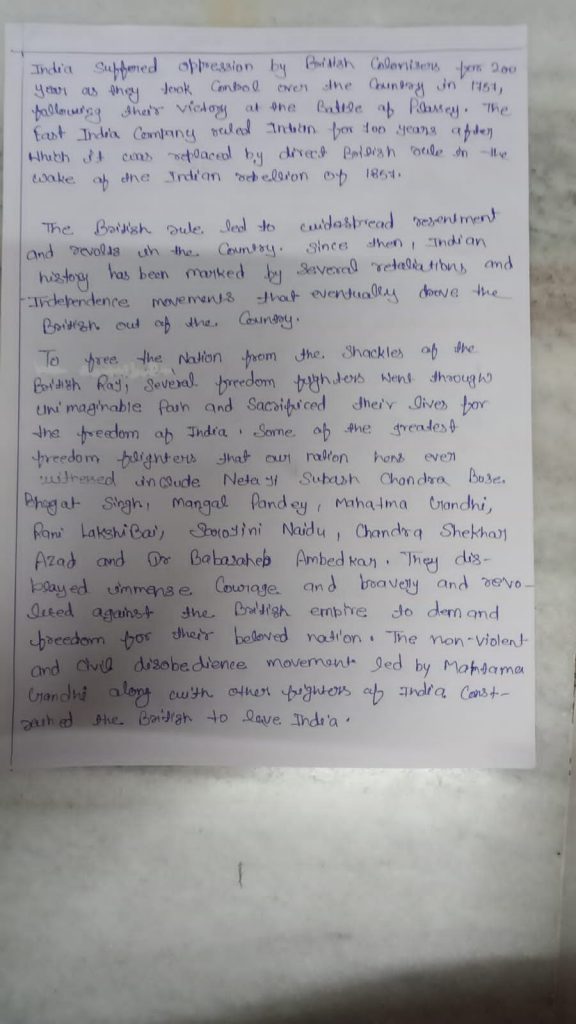 India suffered oppression by British Colonizers for 200
year as they took Control over the Country in 1757,
following their victory at the Battle of Plassey. The
East India Company ruled Indian for 100 years after
which it was replaced by direct British rule in the
wake of the Indian rebellion of 1857.
The British rule led to widespread resentment
and revolts in the Country. Since then, Indian
history has been marked by Several retaliations and
Independence movements that eventually drove the
British out of the Country.
To free the Nation from the Shackles of the
British Raj, Several freedom fighters went through
unimaginable Pain and Sacrificed their lives for
the freedom of India. Some of the greatest
freedom fighters that our nation has ever
witnessed include Netaji Subash Chandra Bose.
Bhagat Singh, Mangal Pandey, Mahatma Gandhi,
Rani Lakshi Bai, Sarojini Naidu, Chandra Shekhar
Azad and Dr Babasaheb Ambedkar. They dis-
played immense Courage and bravery and revo-
lted against the British empire to demand
freedom for their beloved nation. The non-violent
and Civil disobedience movement led by Mahtama
Gandhi along with other fighters of India Const-
rained the British to leave India.